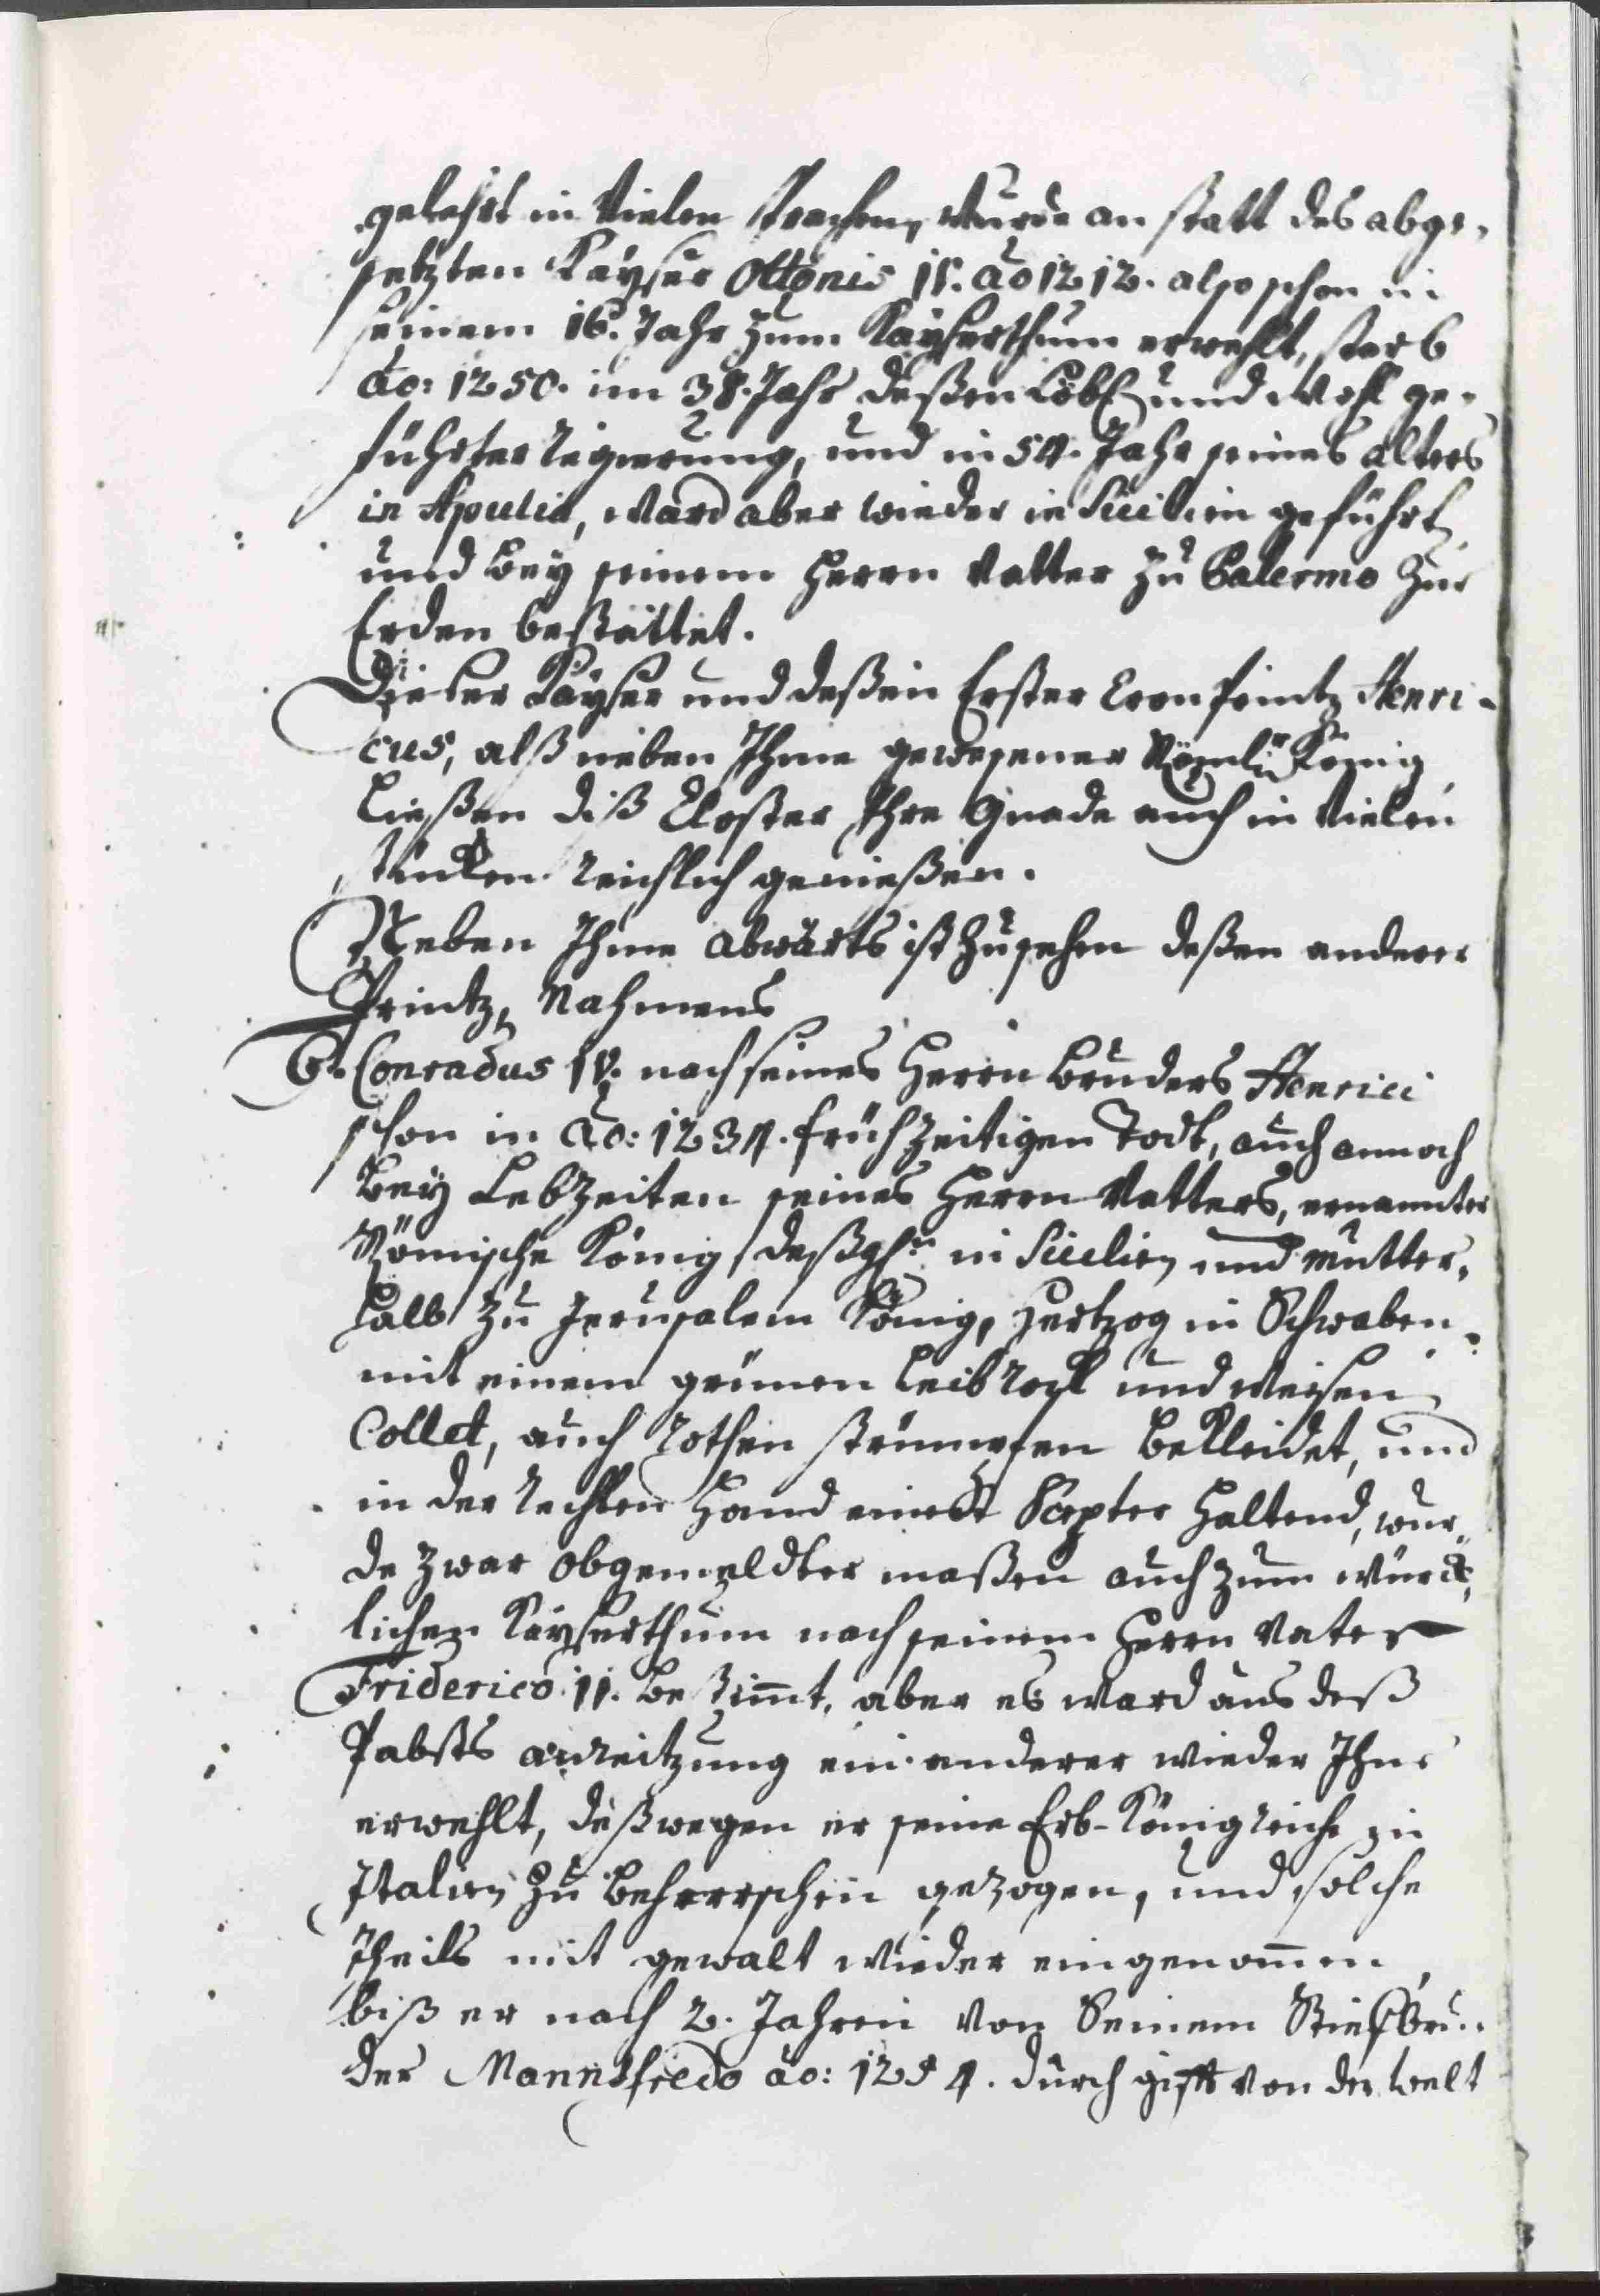 gelehrt in Vielen Sprachen, Wurde an statt des abge-
setzten Kaÿser Ottonis IV. Ao 1212. also schon in
seinem 16. Jahr zum Kaÿserthum erwehlt, starb
Ao: 1250. im 38. Jahr deßen Löbl. und Wohl ge-
führter Regierung, und in 54. Jahr seines Alters
in Apulia, Ward aber wieder in Sicilien geführt
und beÿ seinem Herrn Vatter zu Palermo Zur
Erden bestättet.
Dieser Kaÿser und deßen Erster Cronprintz Henri-
cus, alß neben Ihme gewesener Römli. König
ließen diß Closter Ihre Gnade auch in Vielen
stucken Reichlich genießen.
Neben Ihme Abwärts ist Zusehen deßen anderer
Printz, Nahmens
6. Conradus IV. nach seines Herrn Bruders Henrici
schon in Ao: 1234. frühzeitigen Todt, auch annoch
beÿ Lebzeiten seines Herrn Vatters, ernannter
Römische König, deßgl. in Sicilien und Mutter-
halb zu Jerusalem König, Hertzog in Schwaben
mit einem grünen Leibrock und Weisen
Collet, auch Rothen strümpfen bekleidet, und
in der Rechten Hand einen Scepter Haltend, wur-
de zwar obgemeldter maßen auch zum würck-
lichen Kaÿserthum nach seinem Herrn Vater
Friderico II. bestimt, aber es ward aus deß
Pabsts anreitzung ein anderer wieder Ihne
erwehlt, deßwegen er seine Erb-Königreiche in
Italien zu beherrschen gezogen, und solche
Theils mit gewalt wieder eingenomen
biß er nach 2. Jahren von Seinem Stiefbru-
der Mannsfredo ao: 1254. durch gifft von der Welt